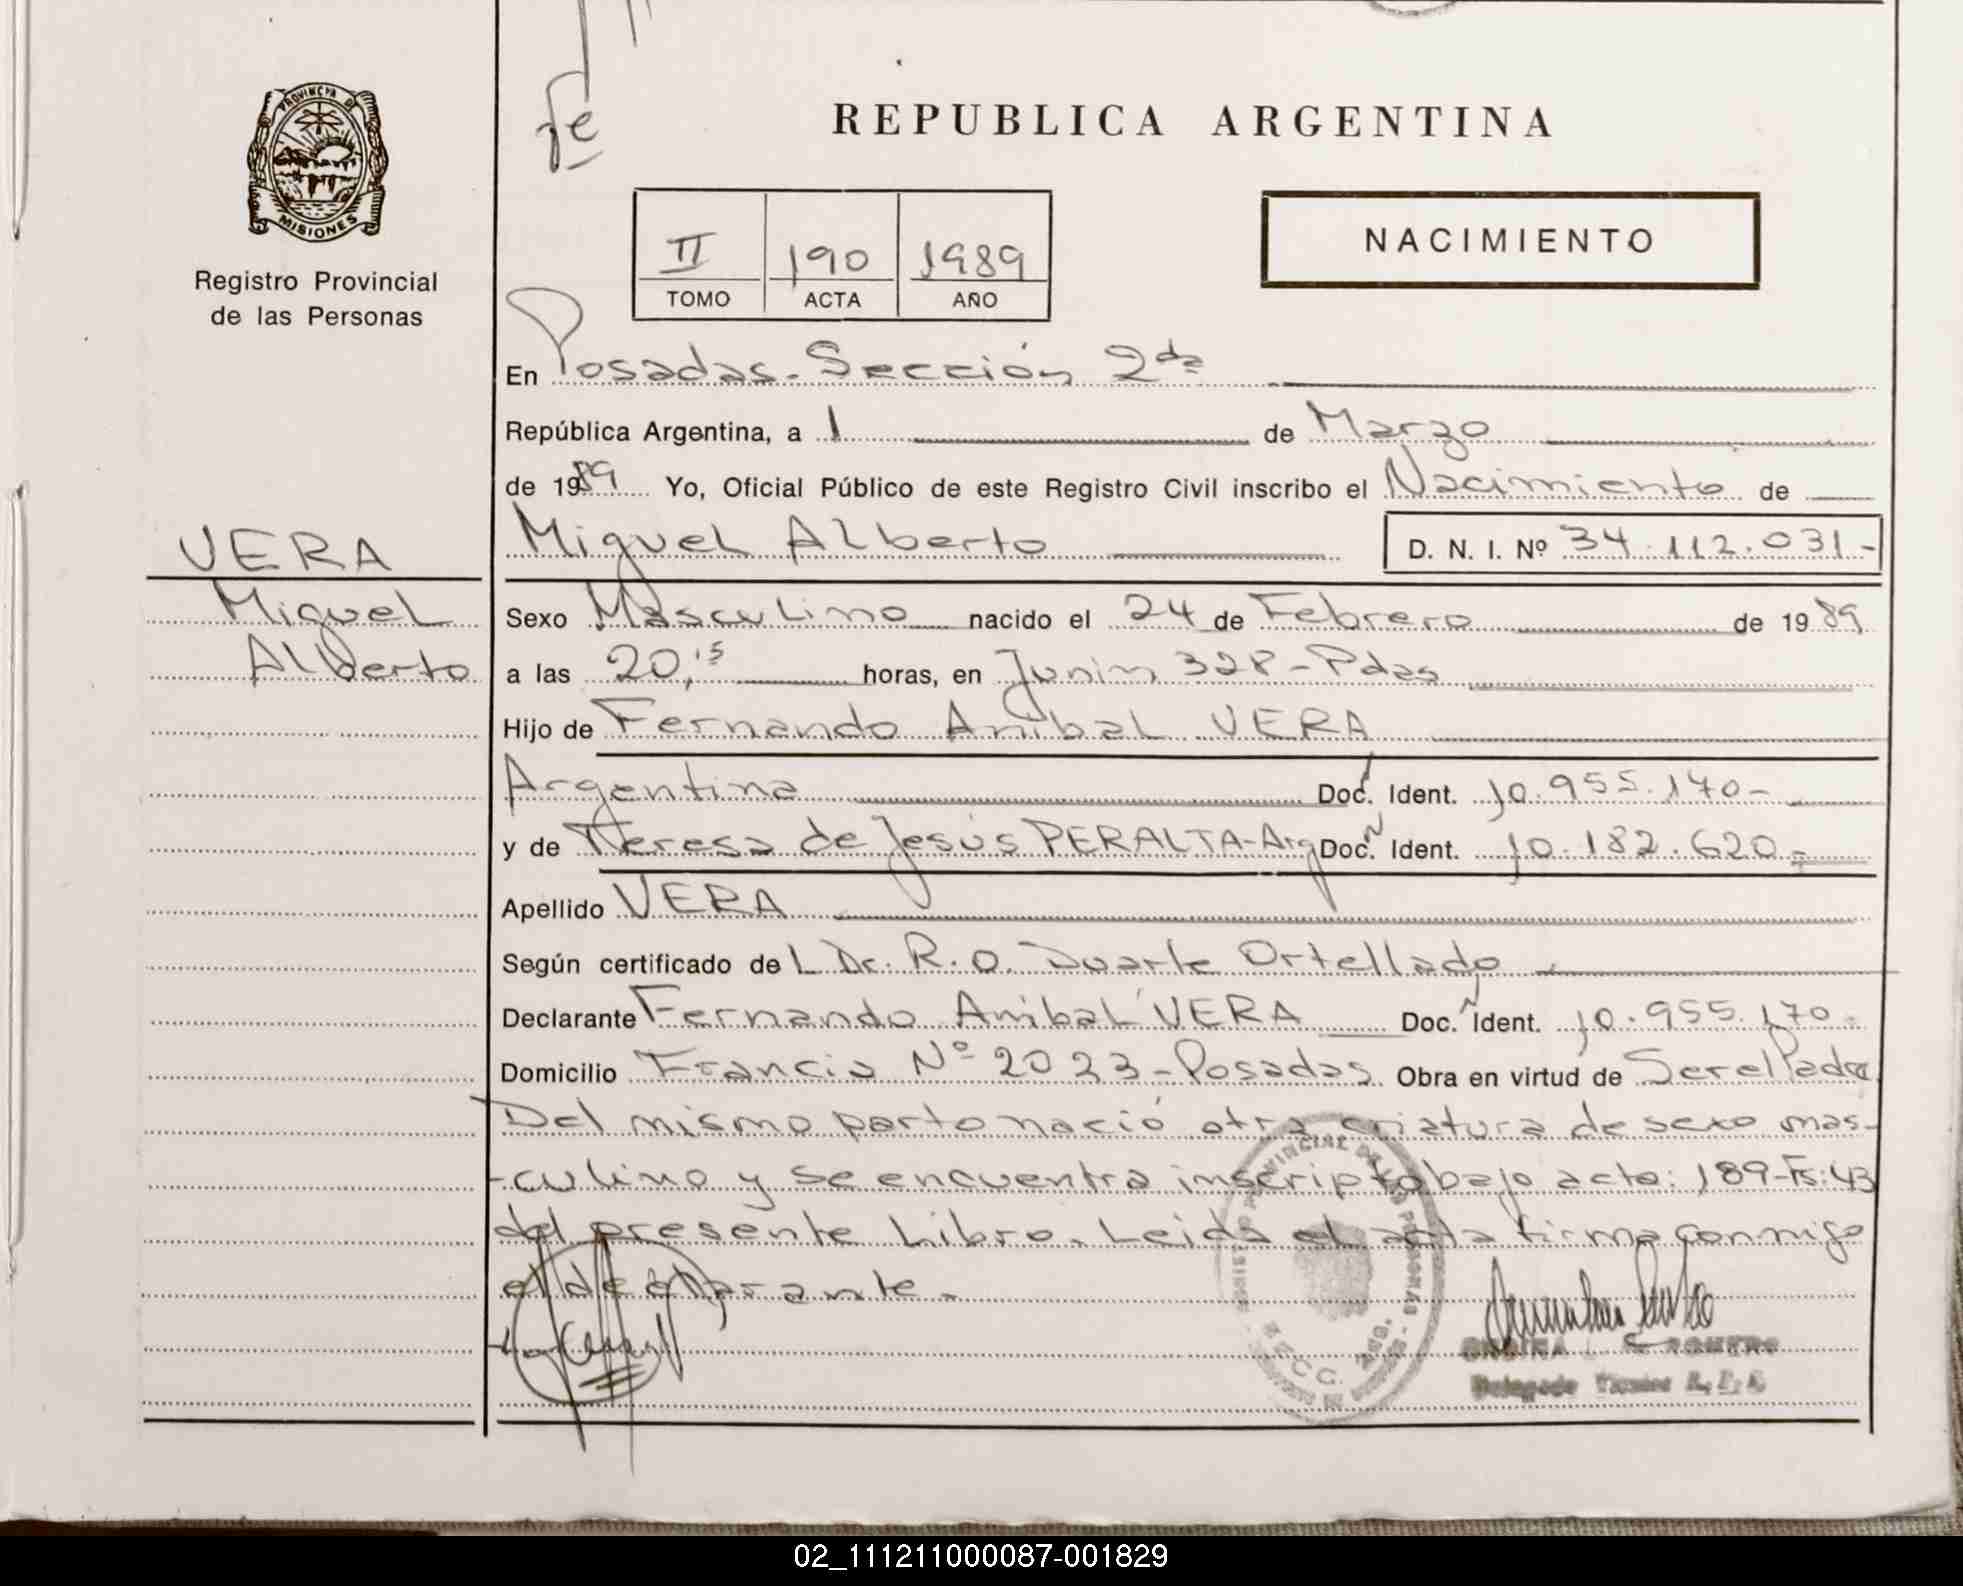 fe
PROVINCIA DE
MISIONES
Registro Provincial
de las Personas
REPUBLICA ARGENTINA
II 190 1989
TOMO ACTA AÑO
NACIMIENTO
En Posadas. Sección 2da
República Argentina, a 1 de Marzo
de 1989 Yo, Oficial Público de este Registro Civil inscribo el Nacimiento de
VERA
Miguel Alberto D. N. I. Nº 34.112.031-
Miguel
Alberto
Sexo Masculino nacido el 24 de Febrero de 1989
a las 20,15 horas, en Junin 328-Pdas
Hijo de Fernando Anibal VERA
Argentina Doc. Ident. 10.955.170-
y de Teresa de Jesús PERALTA-Arg Doc. Ident. 10.182.620-
Apellido VERA
Según certificado de L Dr. R.O. Duarte Ortellado
Declarante Fernando Anibal VERA Doc. Ident. 10.955.170-
Domicilio Francia Nº 2023-Posadas. Obra en virtud de Ser el Padre
Del mismo parto nació otra criatura de sexo mas-
-culino y se encuentra inscripto bajo acta: 189-Fs:43
del presente Libro. Leida el acta firma conmigo
el declarante.
ROMERO
Delegado
02_111211000087-001829